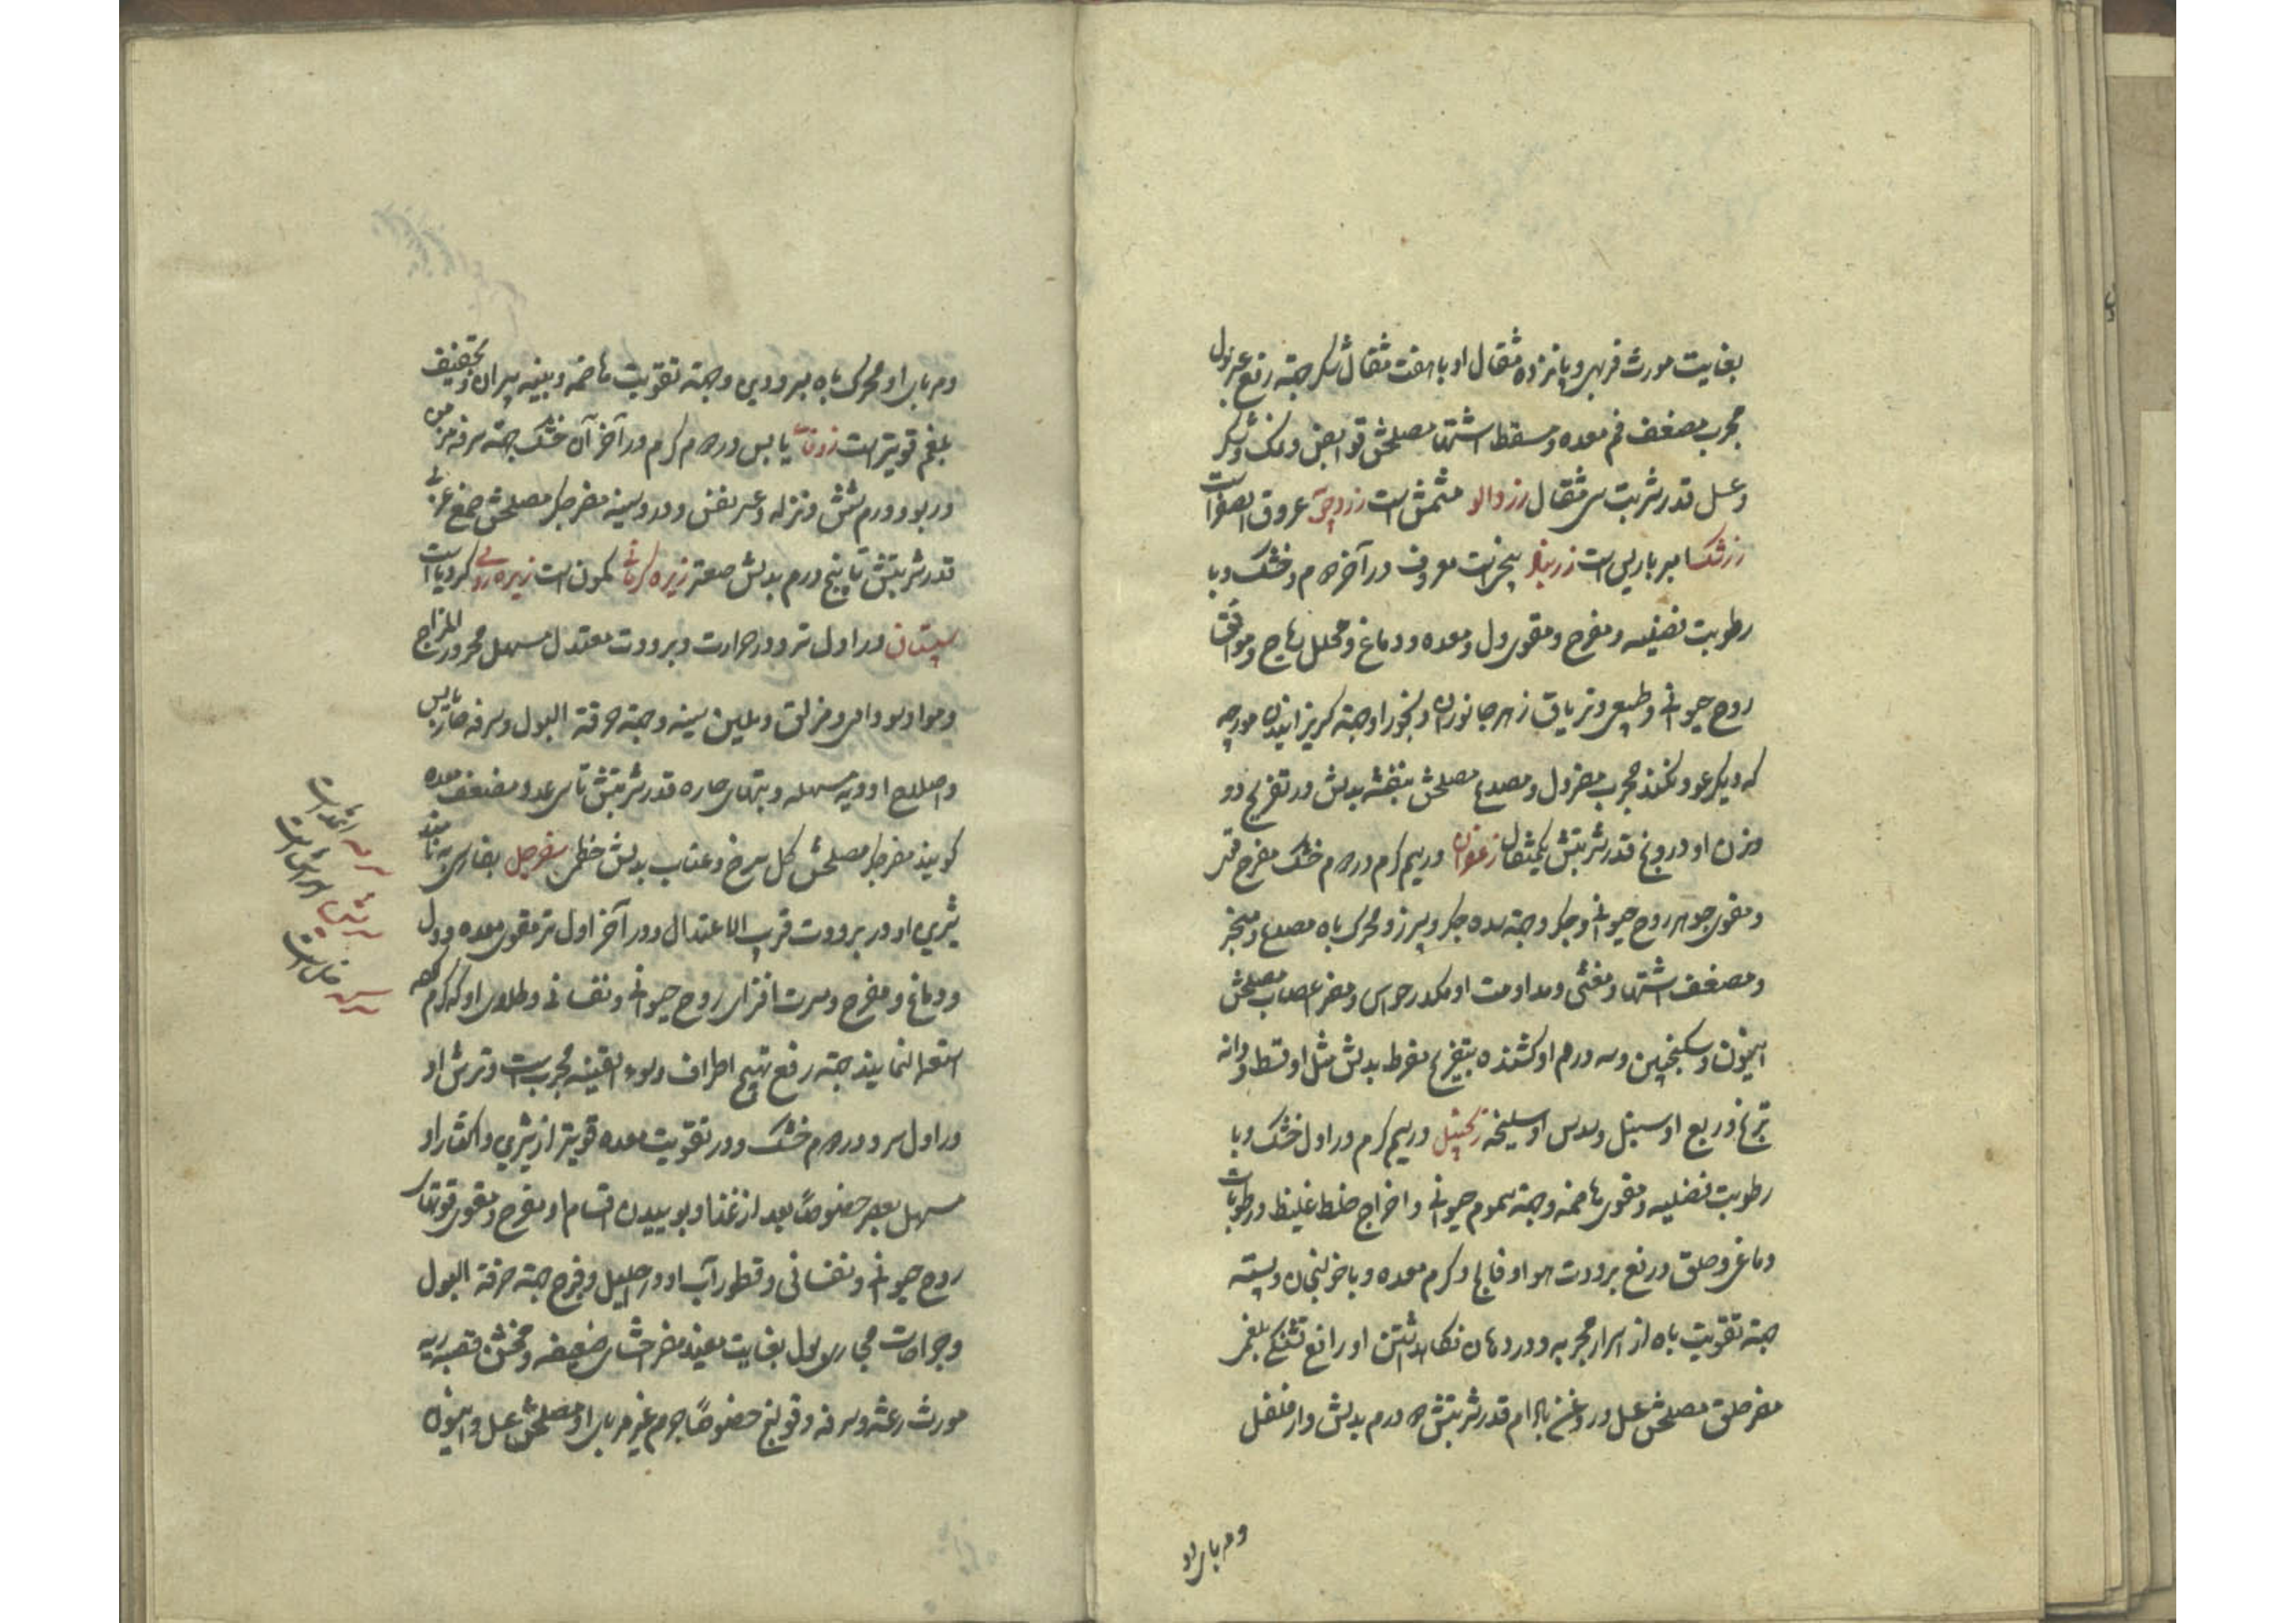 بغایت مورث فربهی و پانزده مثقال او با هفت مثقال شکر جهة رفع عسر بول
مجرب مضعف فم معده و مسقط اشتها مصلحش قوابض و نمک و شکر
و عسل قدر شربت سی مثقال زردآلو مشمش است زردچوبه عروق الصفر است
زرشک امبرباریس است زرنباد بیخی است معروف در آخر دوم و خشک و با
رطوبت فضلیه و مفرح و مقوی دل و معده و دماغ و محلل ریاح و موافق
روح حیوانی و طبیعی و تریاق زهر جانوران و بخور او جهة گریزانیدن مورچه
که دیگر عود نکند مجرب مضر دل و مصدع مصلحش بنفشه بدلش در تفریح دو
وزن او درونج قدر شربتش یکمثقال زعفران در سیم گرم در دوم خشک مفرح قوی
و مقوی جوهر روح حیوانی و جگر و جهة سده جگر و سپرز و محرک باه مصدع و مبخر
و مضعف اشتها و مغثی و مداومت او مکدر حواس و مضر اعصاب مصلحش
انیسون و سکنجبین و سه درم او کشنده بتفریح مفرط بدلش مثل او قسط و دانه
ترنج و ربع او سنبل و سدس او سلیخه زنجبیل در سیم گرم در اول خشک و با
رطوبت فضلیه و مقوی هاضمه و جهة سموم حیوانی و اخراج خلط غلیظ و رطوبات
دماغی و حلق و رفع برودت هوا و فالج و کرم معده و با خولنجان و پسته
جهة تقویت باه از اسرار مجربه و در دهان نگاهداشتن او رافع تشنگی بلغمی
مضر حلق مصلحش عسل و روغن بادام قدر شربتش دو درم بدلش دارفلفل
و مربای او
و مربای او محرک باه مبرودین و جهة تقویت هاضمه و بنیه پیران و تجفیف
بلغم قویتر است زوفا یابس در دوم گرم در آخر آن خشک جهة سرفه مزمن
و ربو و ورم شش و نزله و عسر نفس و درد سینه مضر جگر مصلحش صمغ عربی
قدر شربتش تا پنج درم بدلش صعتر زیره کرمانی کمون است زیره رومی کرویا است
سپستان در اول تر و در حرارت و برودت معتدل مسهل محرور المزاج
و مواد سوداوی و مزلق و ملین سینه و جهة حرقة البول و سرفه حار یابس
و اصلاح ادویه مسهله و تبهای حاره قدر شربتش تا سی عدد و مضعف معده
گویند مضر جگر مصلحش گل سرخ و عناب بدلش خطمی سفرجل بفارسی به نامند
شیرین او در برودت قریب الاعتدال و در آخر اول تر مقوی معده و دل
و دماغ و مفرح و مسرت افزای روح حیوانی و نفسانی و طلای او که گرم کرده
استعمال نمایند جهة رفع تهیج اطراف و سوء القنیه مجرب است و ترش او
در اول سرد و در دوم خشک و در تقویت معده قویتر از شیرین و اکثار او
مسهل بعصر خصوصاً بعد از غذا و بوییدن اقسام او مفرح و مقوی قوتهای
روح حیوانی و نفسانی و قطور آب او در احلیل و فرج جهة حرقة البول
و جراحات مجاری بول بغایت مفید مضر احشای ضعیفه و مخشن قصبه ریه
مورث رعشه و سرفه و قولنج خصوصاً جرم غیر مربای او مصلحش عسل و انیسون
سرمه اثمد است